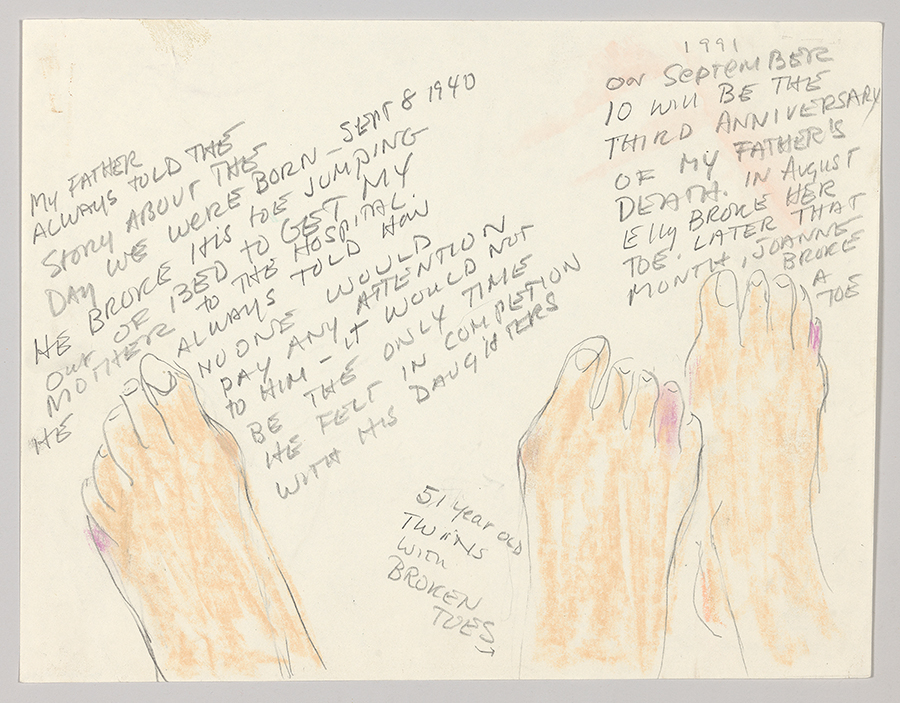 MY FATHER
ALWAYS TOLD THE
STORY ABOUT THE
DAY WE WERE BORN - SEPT 8 1940
HE BROKE HIS TOE JUMPING
OUT OF BED TO GET MY
MOTHER TO THE HOSPITAL.
HE ALWAYS TOLD HOW
NO ONE WOULD
PAY ANY ATTENTION
TO HIM - IT WOULD NOT
BE THE ONLY TIME
HE FELT IN COMPETION
WITH HIS DAUGHTERS
1991
ON SEPTEMBER
10 WILL BE THE
THIRD ANNIVERSARY
OF MY FATHER'S
DEATH. IN AUGUST
Elly BROKE HER
TOE. LATER THAT
MONTH, JOANNE
BROKE
A
TOE
51 year OLD
TWiNS
WITH
BROKEN
TOES